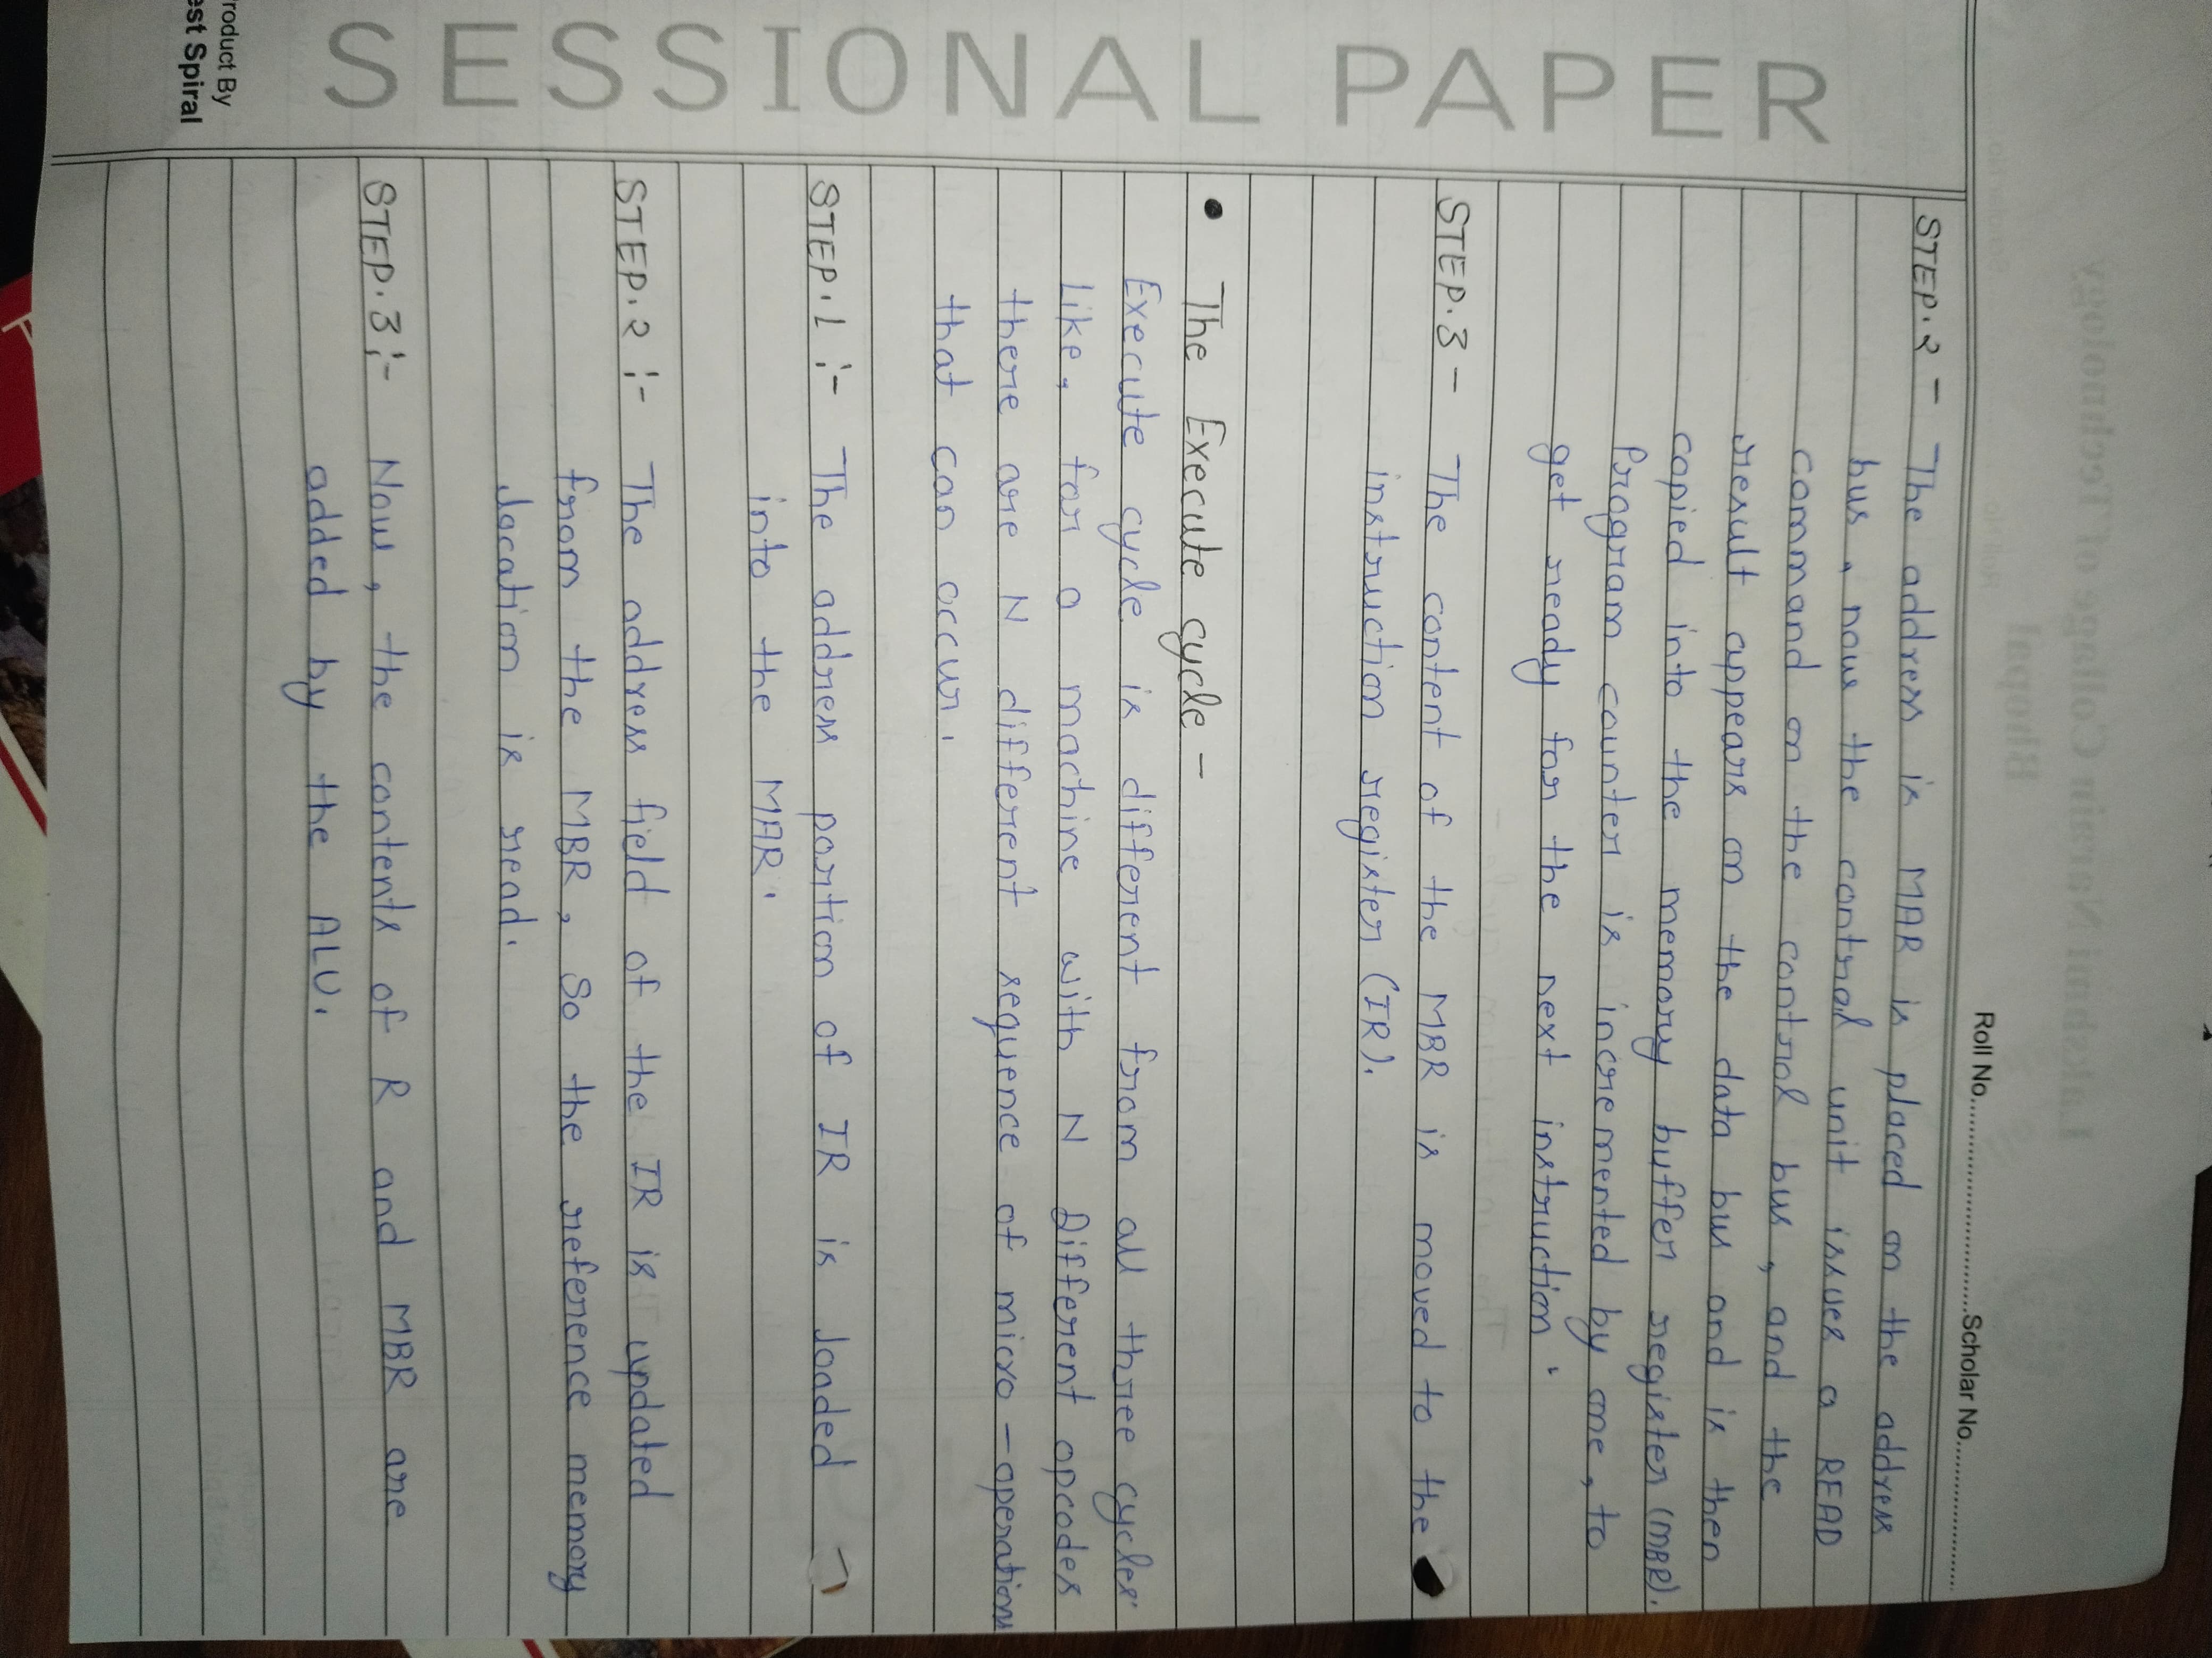 Lakshmi Narain Collage of Technology
Bhopal
Roll No. Scholar No.
STEP.2 - The address is MAR is placed on the address
bus, now the control unit issues a READ
command on the control bus, and the
result appears on the data bus and is then
copied into the memory buffer register (MBR).
Program counter is incremented by one, to
get ready for the next instruction.
STEP.3 - The content of the MBR is moved to the
instruction register (IR).
• The Execute cycle -
Execute cycle is different from all three cycles.
Like, for a machine with N Different opcodes
there are N different sequence of micro-operations
that can occur.
STEP.1 :- The address portion of IR is loaded
into the MAR.
STEP.2 :- The address field of the IR is updated
from the MBR, So the reference memory
location is read.
STEP.3 :- Now, the contents of R and MBR are
added by the ALU.
SESSIONAL PAPER
roduct By
est Spiral